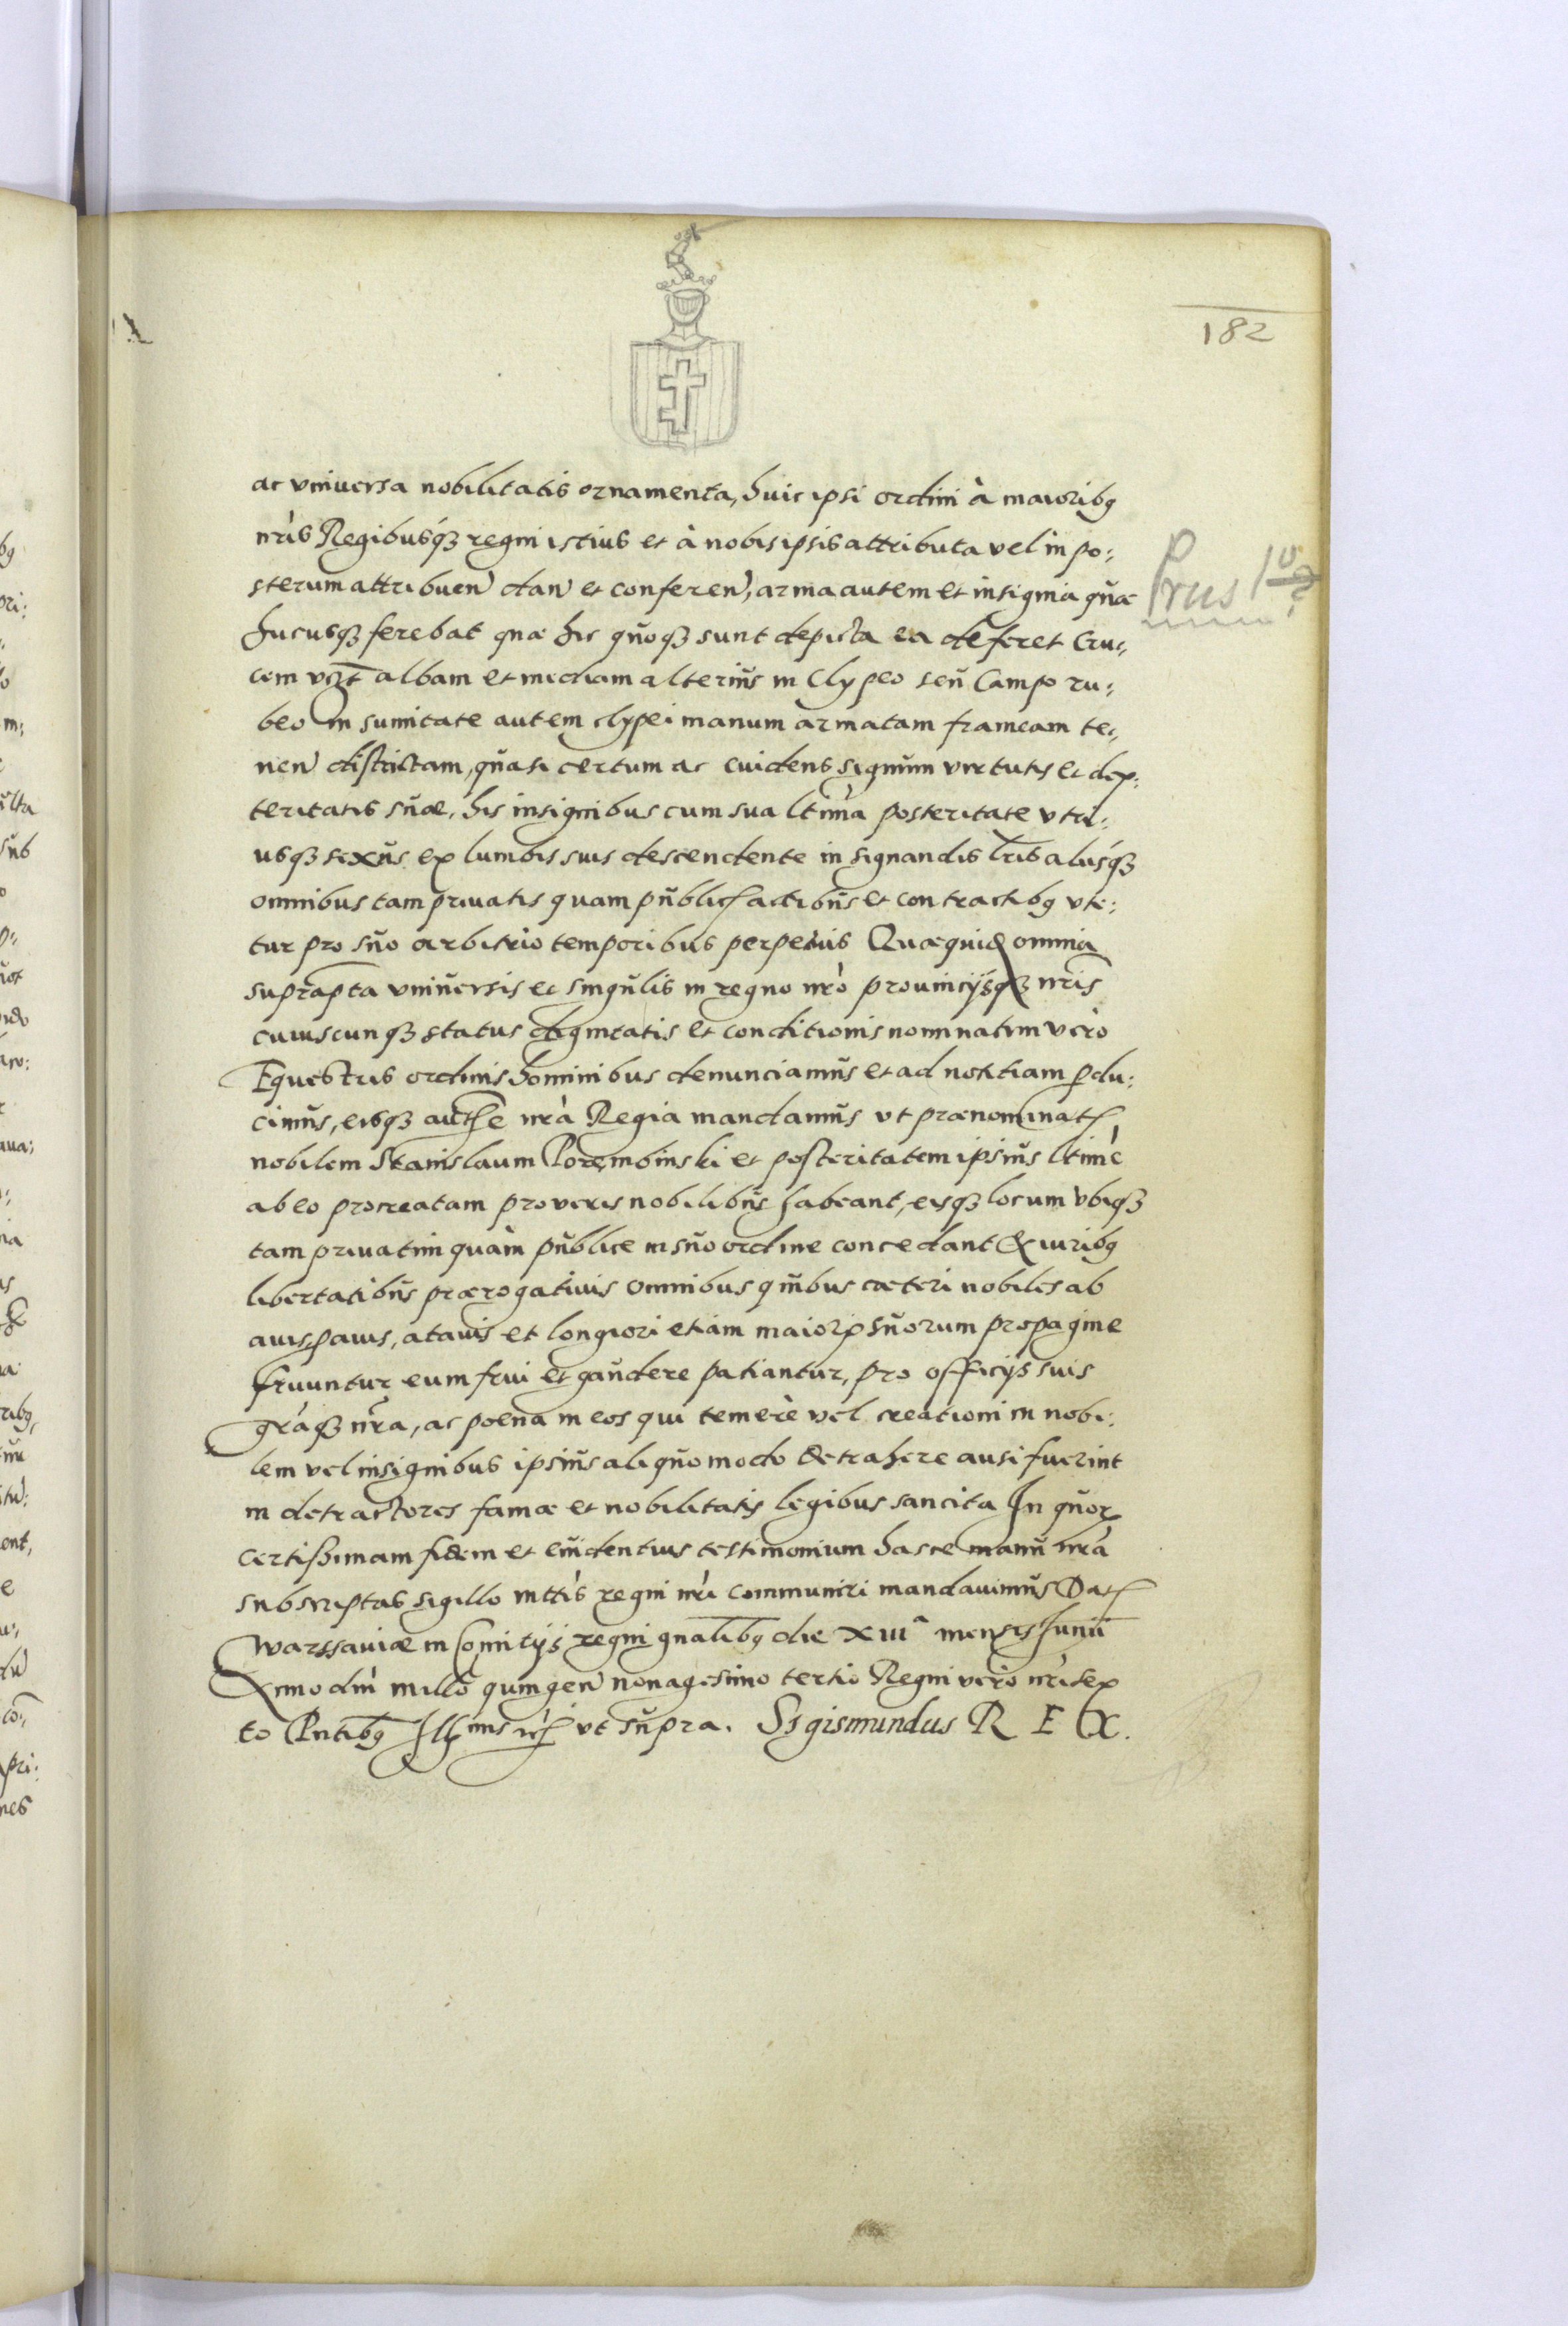 182
ac vniuersa nobilitatis ornamenta, huic ipsi ordini à maioribq
nr̃is Regibusq́ꝫ regni istius et à nobis ipsis attributa vel in po:
sterum attribueñ dañ et confereñ, arma autem et insignia quæ
Prus 1o
hucusqꝫ ferebat quæ hic quoqꝫ sunt depicta ea deferet Cru,,
cem vꝫt albam et mediam alterius in Clypeo seu Campo ru,,
beo in sumitate autem clypei manum armatam frameam te,,
neñ districtam, quasi certum ac euidens signum virtutis et dex:
teritatis suæ, his insignibus cum sua ltima posteritate vtri:
usqꝫ sexus ex lumbis suis descendente in signandis lr̃is alijsq́ꝫ
omnibus tam priuatis quam publicꝭ actibus et contractibq vte:
tur pro suo arbitrio temporibus perpetuis Quæquid omnia
suprapta vniuersis et singulis in regno nr̃o prouincijsq́ꝫ nr̃is
cuiuscunqꝫ status dignitatis et conditionis nominatim vero
Equestris ordinis hominibus denunciamus et ad notitiam ꝑdu:
cimus, eisqꝫ aucthe nr̃a Regia mandamus vt prænominatꝭ
nobilem Stanislaum Porembinski et posteritatem ipsius ltime
ab eo procreatam pro veris nobilibus habeant, eisqꝫ locum vbiqꝫ
tam priuatim quàm publice in suo ordine concedant & iuribq
libertatibus prærogatiuis omnibus quibus cæteri nobiles ab
auis ꝓauis, atauis et longiori etiam maiorꝝ suorum propagine
fruuntur eum frui et gaudere patiantur, pro officijs suis
gr̃aqꝫ nr̃a, ac poena in eos qui temerè vel creationi in nobi:
lem vel insignibus ipsius aliquo modo detrahere ausi fuerint
in detractores famæ et nobilitatis legibus sancita In quorꝝ
certissimam fidem et euidentius testimonium hasce manu nr̃a
subscriptas sigillo mttis regni nr̃i communiri mandauimus Datꝭ
Warssauiæ in Comitijs regni gnalibq die XIIIa mensis Iunii
Anno dni millo quingeñ nonagesimo tertio Regni vero nr̃i sex
to Pntibq Illmis vt supra. Sigismundus R E X.